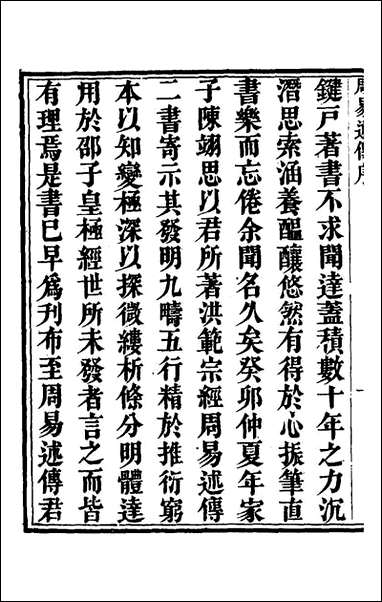 周易述傳序
鍵戸著書不求聞達蓋積數十年之力沉
潛思索涵養醞釀悠然有得於心振筆直
書樂而忘倦余聞名久矣癸卯仲夏年家
子陳翊思以君所著洪範宗經周易述傳
二書寄示其發明九疇五行精於推衍窮
本以知變極深以探微縷析條分明體達
用於邵子皇極經世所未發者言之而皆
有理焉是書已早爲刊布至周易述傳君